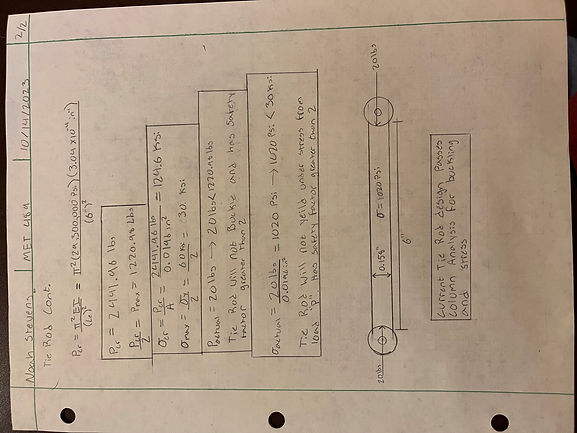 Noah Stevens | MET 489 | 10/14/2023 2/2
Tie Rod Cont.
Pcr = π²EI/(Le)² = π²(29,300,000 PSI)(3.04 x10⁻⁴ in⁴)/(6")²
Pcr = 2441.96 lbs
Pcr/2 = Pmax = 1220.98 Lbs
σcr = Pcr/A = 2441.96 lb/0.0196 in² = 124.6 Ksi
σmax = σy/2 = 60 Ksi/2 = 30 Ksi
Pactual = 20 lbs → 20 lbs < 1220.98 lbs
Tie Rod will not Buckle and has Safety
factor greater than 2
σactual = 20 lbs/0.0196 in² = 1020 PSI → 1020 PSI < 30 Ksi
Tie Rod Will not yeild under stress from
load "P". Has Safety factor greater than 2
20lbs
0.158"
σ=1020 PSI
20lbs
6"
Current Tie Rod design Passes
Column Analysis for buckling
and stress